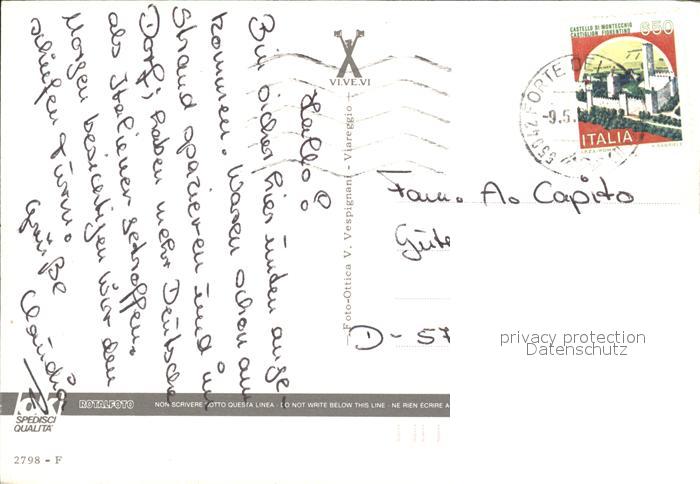 Hallo!
Bin sicher hier unten ange-
kommen. Waren schon am
Strand spazieren und im
Dorf; haben mehr Deutsche
als Italiener getroffen.
Morgen besichtigen wir den
schiefen Turm.
Grüße
Claudia
VI.VE.VI
Foto-Ottica V. Vespignani - Viareggio
CASTELLO DI MONTECCHIO
CASTIGLION FIORENTINO
650
ITALIA
55042 FORTE DEI
-9.5.
Fam. A. Capito
D - 57
privacy protection
Datenschutz
SPEDISCI
QUALITA'
ROTALFOTO
NON SCRIVERE SOTTO QUESTA LINEA - DO NOT WRITE BELOW THIS LINE - NE RIEN ÉCRIRE A
2798 - F